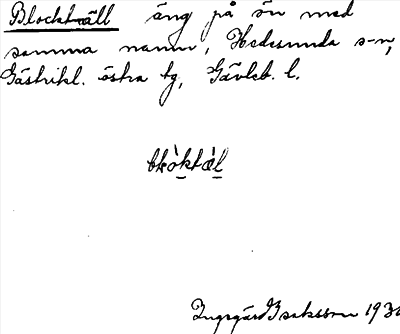 Blocktäll äng på ön med
samma namn, Hedesunda s-n,
Gästrikl. östra tg, Gävleb. l.
Ingegärd Isaksson 193